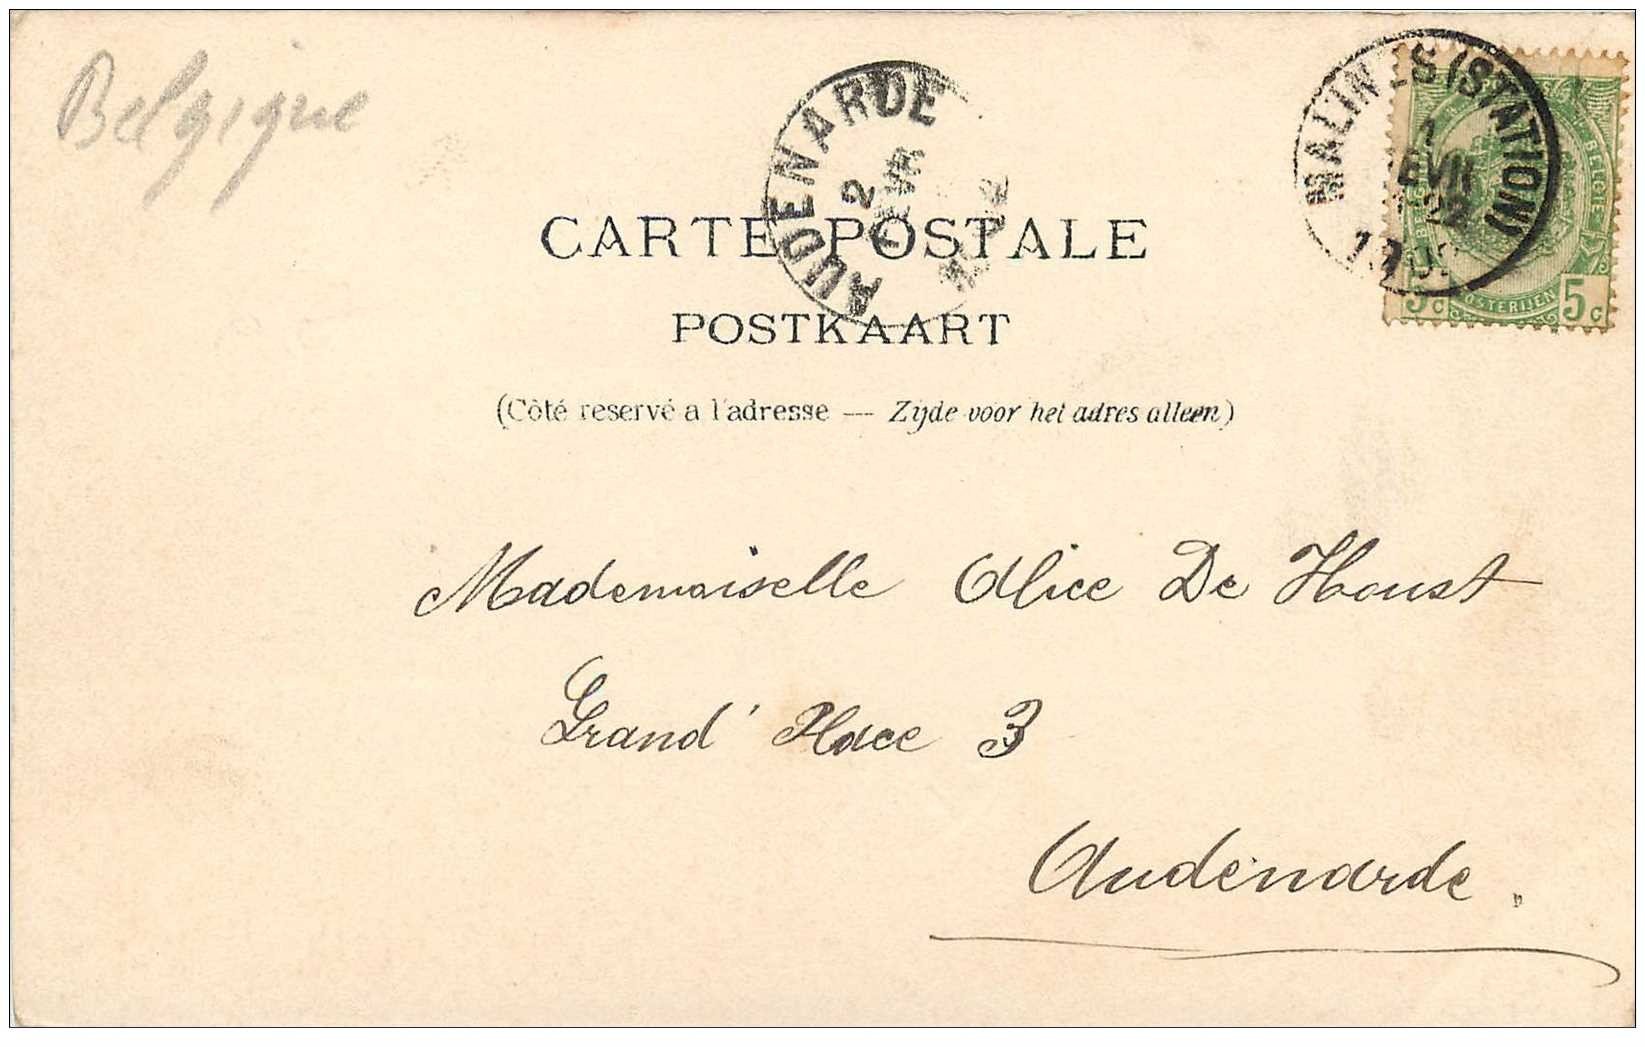 Belgique
AUDENARDE
2
MALINES (STATION)
BELGIQUE BELGIE
5c POSTERIJEN 5c
CARTE POSTALE
POSTKAART
(Côté reservé a l'adresse — Zijde voor het adres alleen)
Mademoiselle Alice De Houst
Grand' Place 3
Audenarde.